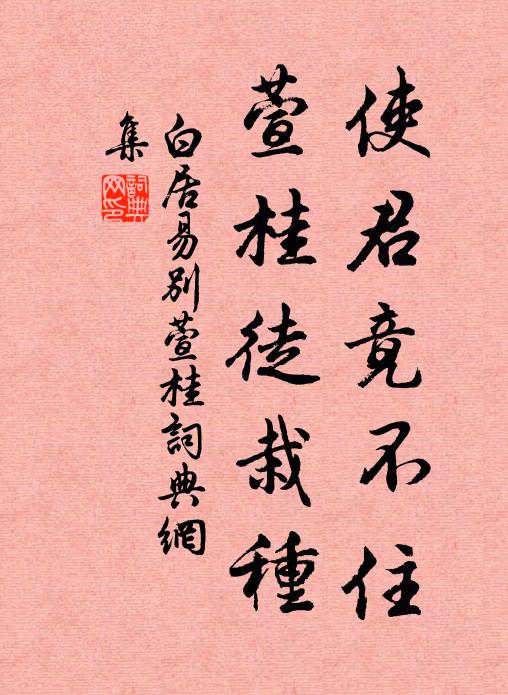 使君竟不住
萱桂徒栽種
白居易別萱桂詞典網
集
詞典
网印